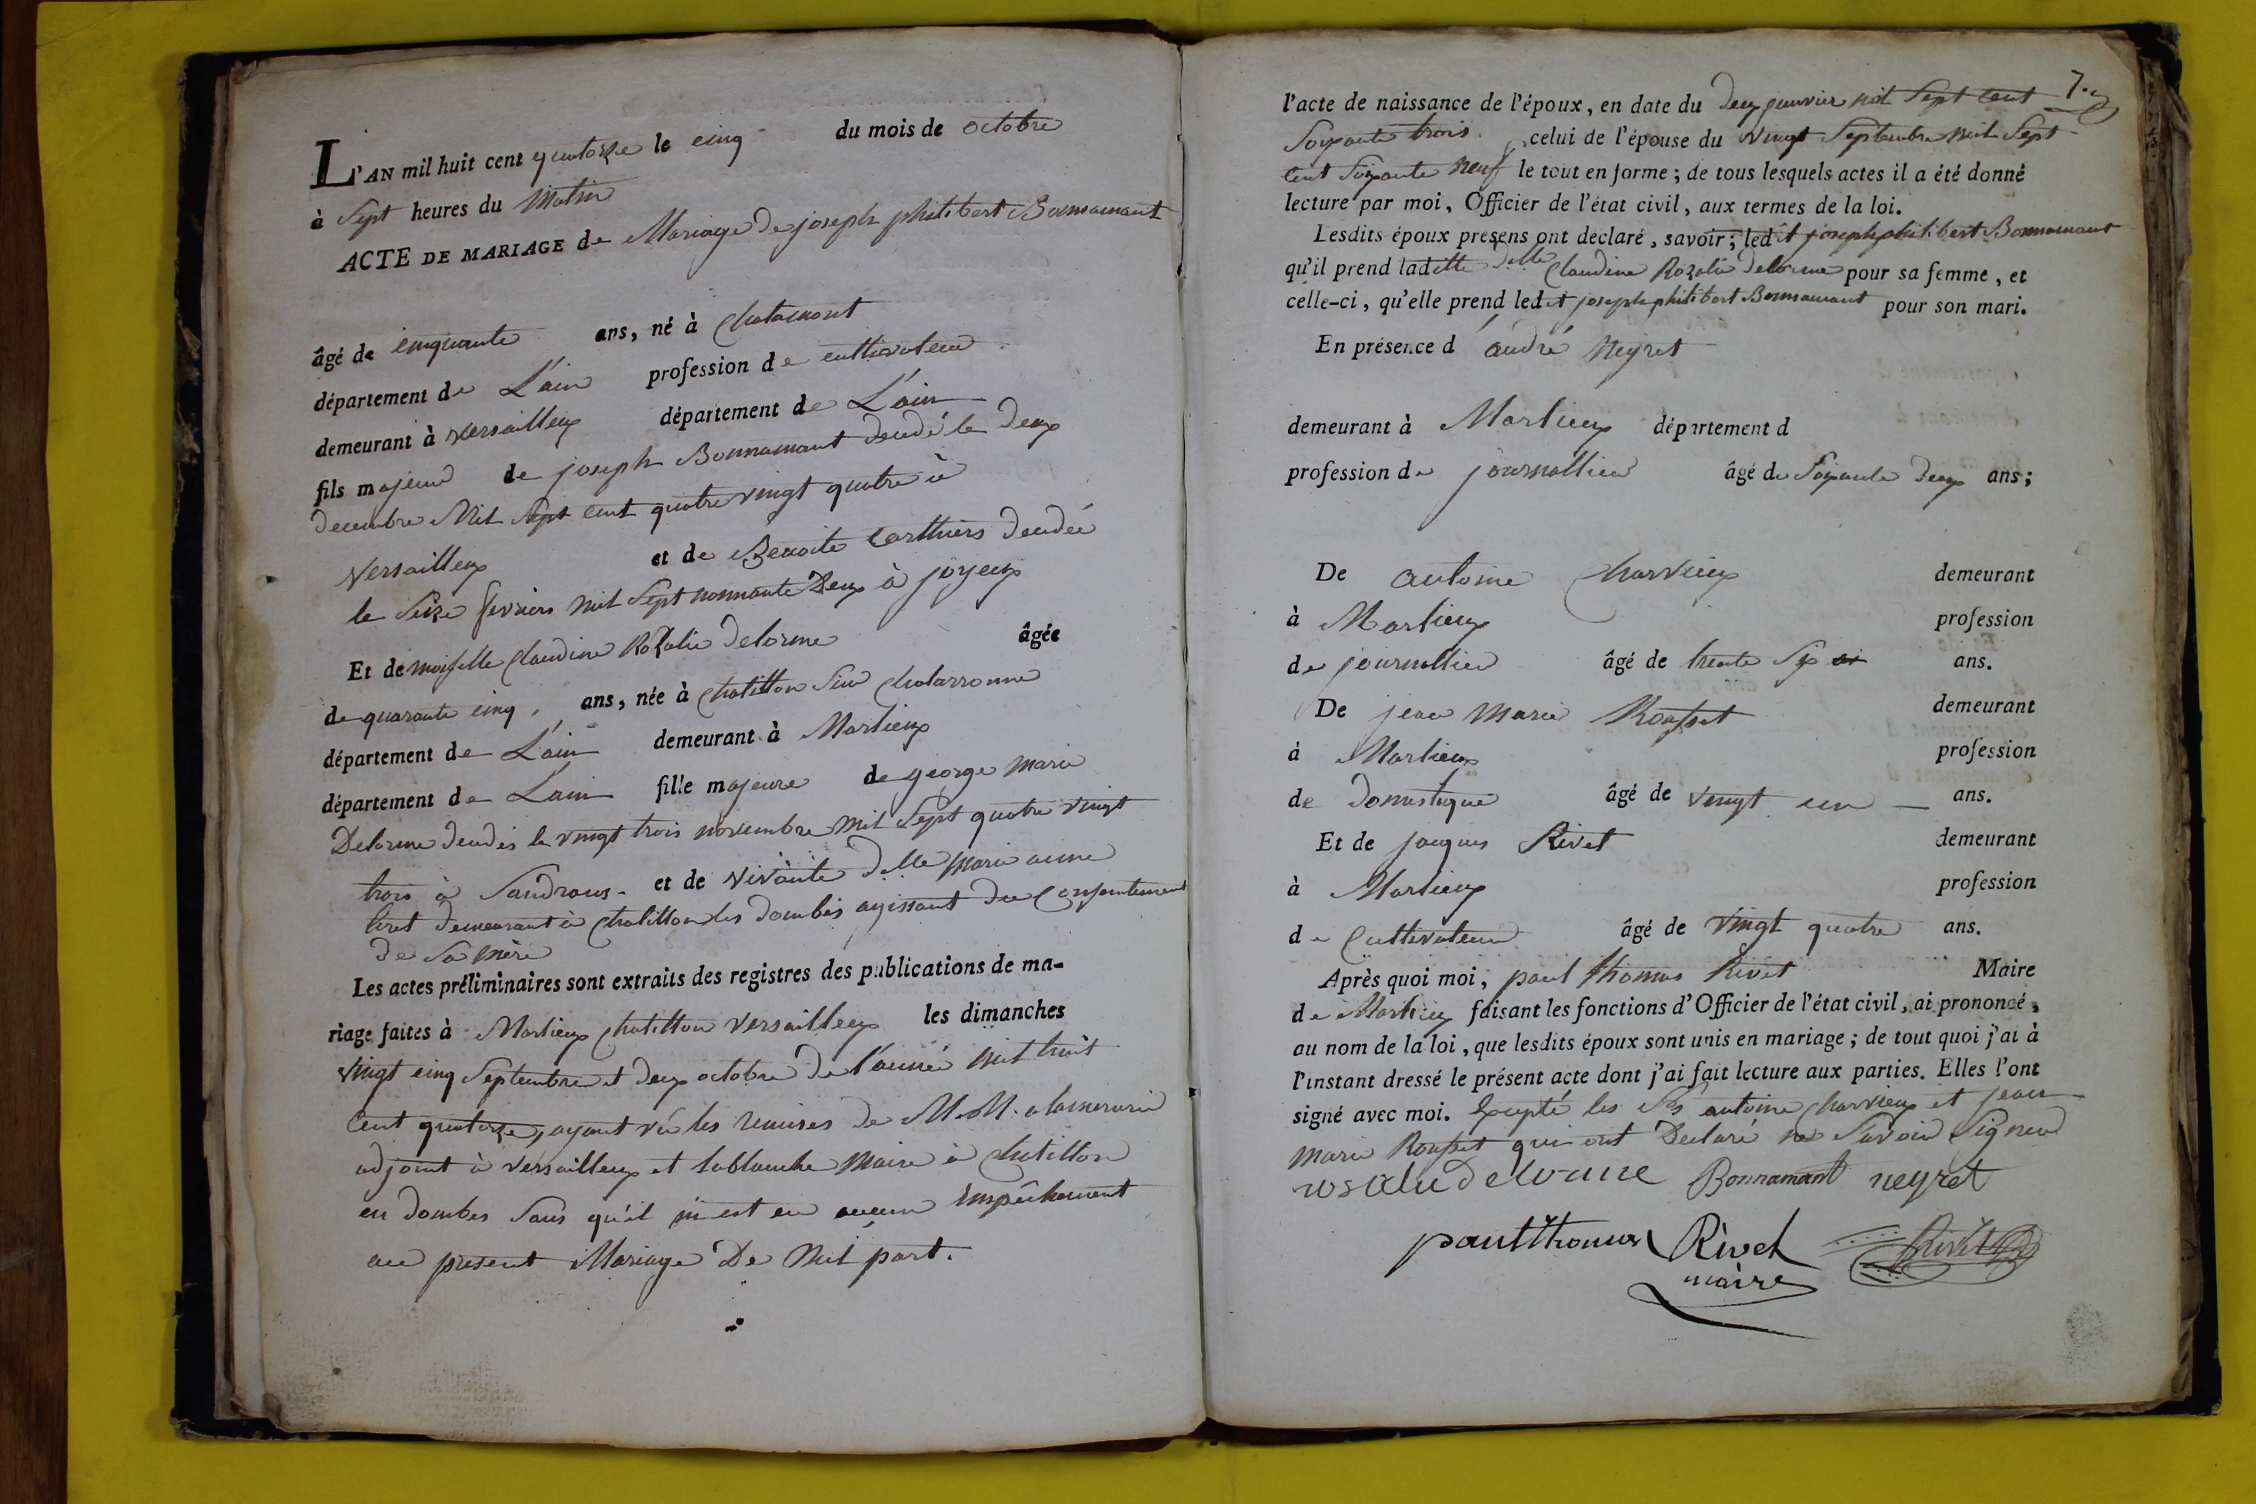 L'AN mil huit cent quatorze le cinq du mois de octobre
à Sept heures du Matin
ACTE DE MARIAGE de Mariage de joseph philibert Bonnamant
âgé de cinquante ans, né à Chatenont
département de L'ain profession de cultivateur
demeurant à versailleux département de L'ain
fils majeur de joseph Bonnamant décédé le deux
decembre Mil Sept cent quatre vingt quatre à
Versailleux et de Benoite Carthiers décédée
le Seize fevriers mil Sept nonnante Deux à joyeux
Et demoiselle Claudine Rozalie delorme âgée
de quarante cinq ans, née à Chatillon Sur Chalaronne
département de L'ain demeurant à Marlieux
département de L'ain fille majeure de george marie
Delorme décédés le vingt trois novembre mil Sept quatre vingt
trois à Sandrans et de vivante delle marie anne
demeurant à Chatillon les dombes agissant du Consentement
de Sa Mère
Les actes préliminaires sont extraits des registres des publications de ma-
riage faites à Marlieux Chatillon versailleux les dimanches
vingt cinq Septembre et deux octobre de l'année mil huit
cent quatorze, ayant vû les remises de M.M.
adjoint à versailleux et lablanche Maire à Chatillon
en dombes Sans qu'il n'i est eu aucun Empêchement
au présent Mariage De Nul part.
7.
l'acte de naissance de l'époux, en date du deux janvier mil Sept cent
Soixante trois, celui de l'épouse du vingt Septembre mil Sept
cent Soixante neuf le tout en forme ; de tous lesquels actes il a été donné
lecture par moi, Officier de l'état civil, aux termes de la loi.
Lesdits époux présens ont déclaré, savoir ; ledit joseph philibert Bonnamant
qu'il prend ladette delle Claudine Rozalie delorme pour sa femme, et
celle-ci, qu'elle prend ledit joseph philibert Bonnamant pour son mari.
En présence d'andré Neyret
demeurant à Marlieux département d
profession de journallier âgé de Soixante deux ans ;
De antoine Charvieux demeurant
à Marlieux profession
de journallier âgé de trente Six ans.
De jean Marie Rousset demeurant
à Marlieux profession
de domestique âgé de vingt un ans.
Et de jacques Rivet demeurant
à Marlieux profession
de Cultivateur âgé de vingt quatre ans.
Après quoi moi, paul thomas Rivet Maire
de Marlieux faisant les fonctions d'Officier de l'état civil, ai prononcé,
au nom de la loi, que lesdits époux sont unis en mariage ; de tout quoi j'ai à
l'instant dressé le présent acte dont j'ai fait lecture aux parties. Elles l'ont
signé avec moi. Excepté les Srs antoine Charvieux et jean
marie Rousset qui ont Déclaré ne Savoir Signer
rosalie delorme Bonnamant neyret
paul thomas Rivet Rivet
maire